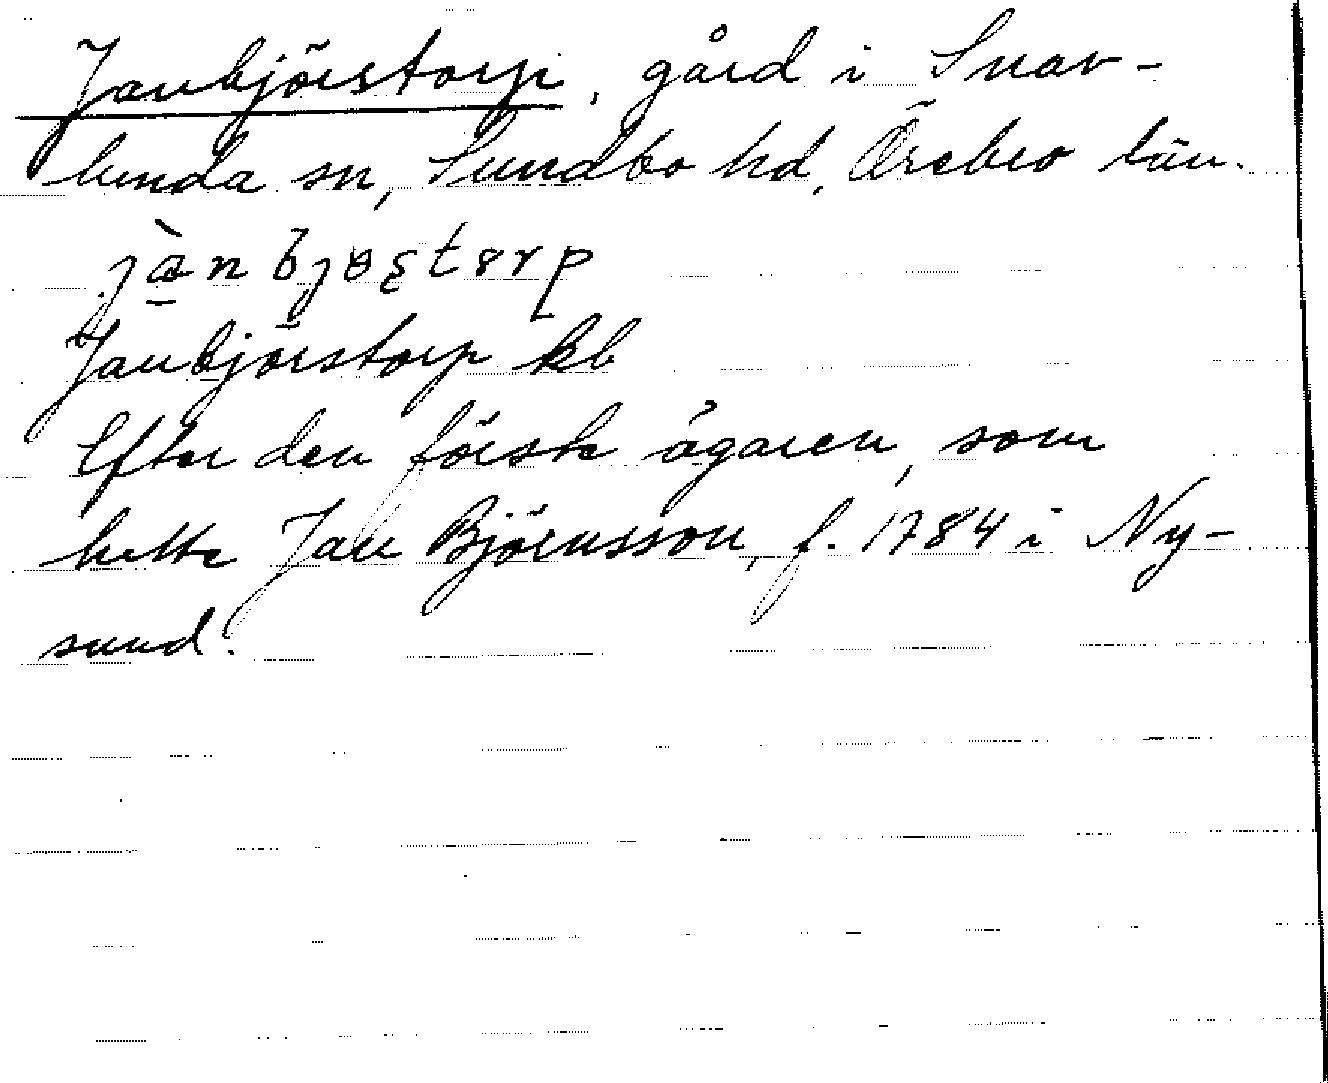 Janbjörstorp, gård i Snav-
lunda sn, Sundbo hd, Örebro län.
jànbjɵştɵrp
Janbjörstorp kb
Efter den förste ägaren, som
hette Jan Björnsson, f. 1784 i Ny-
sund.